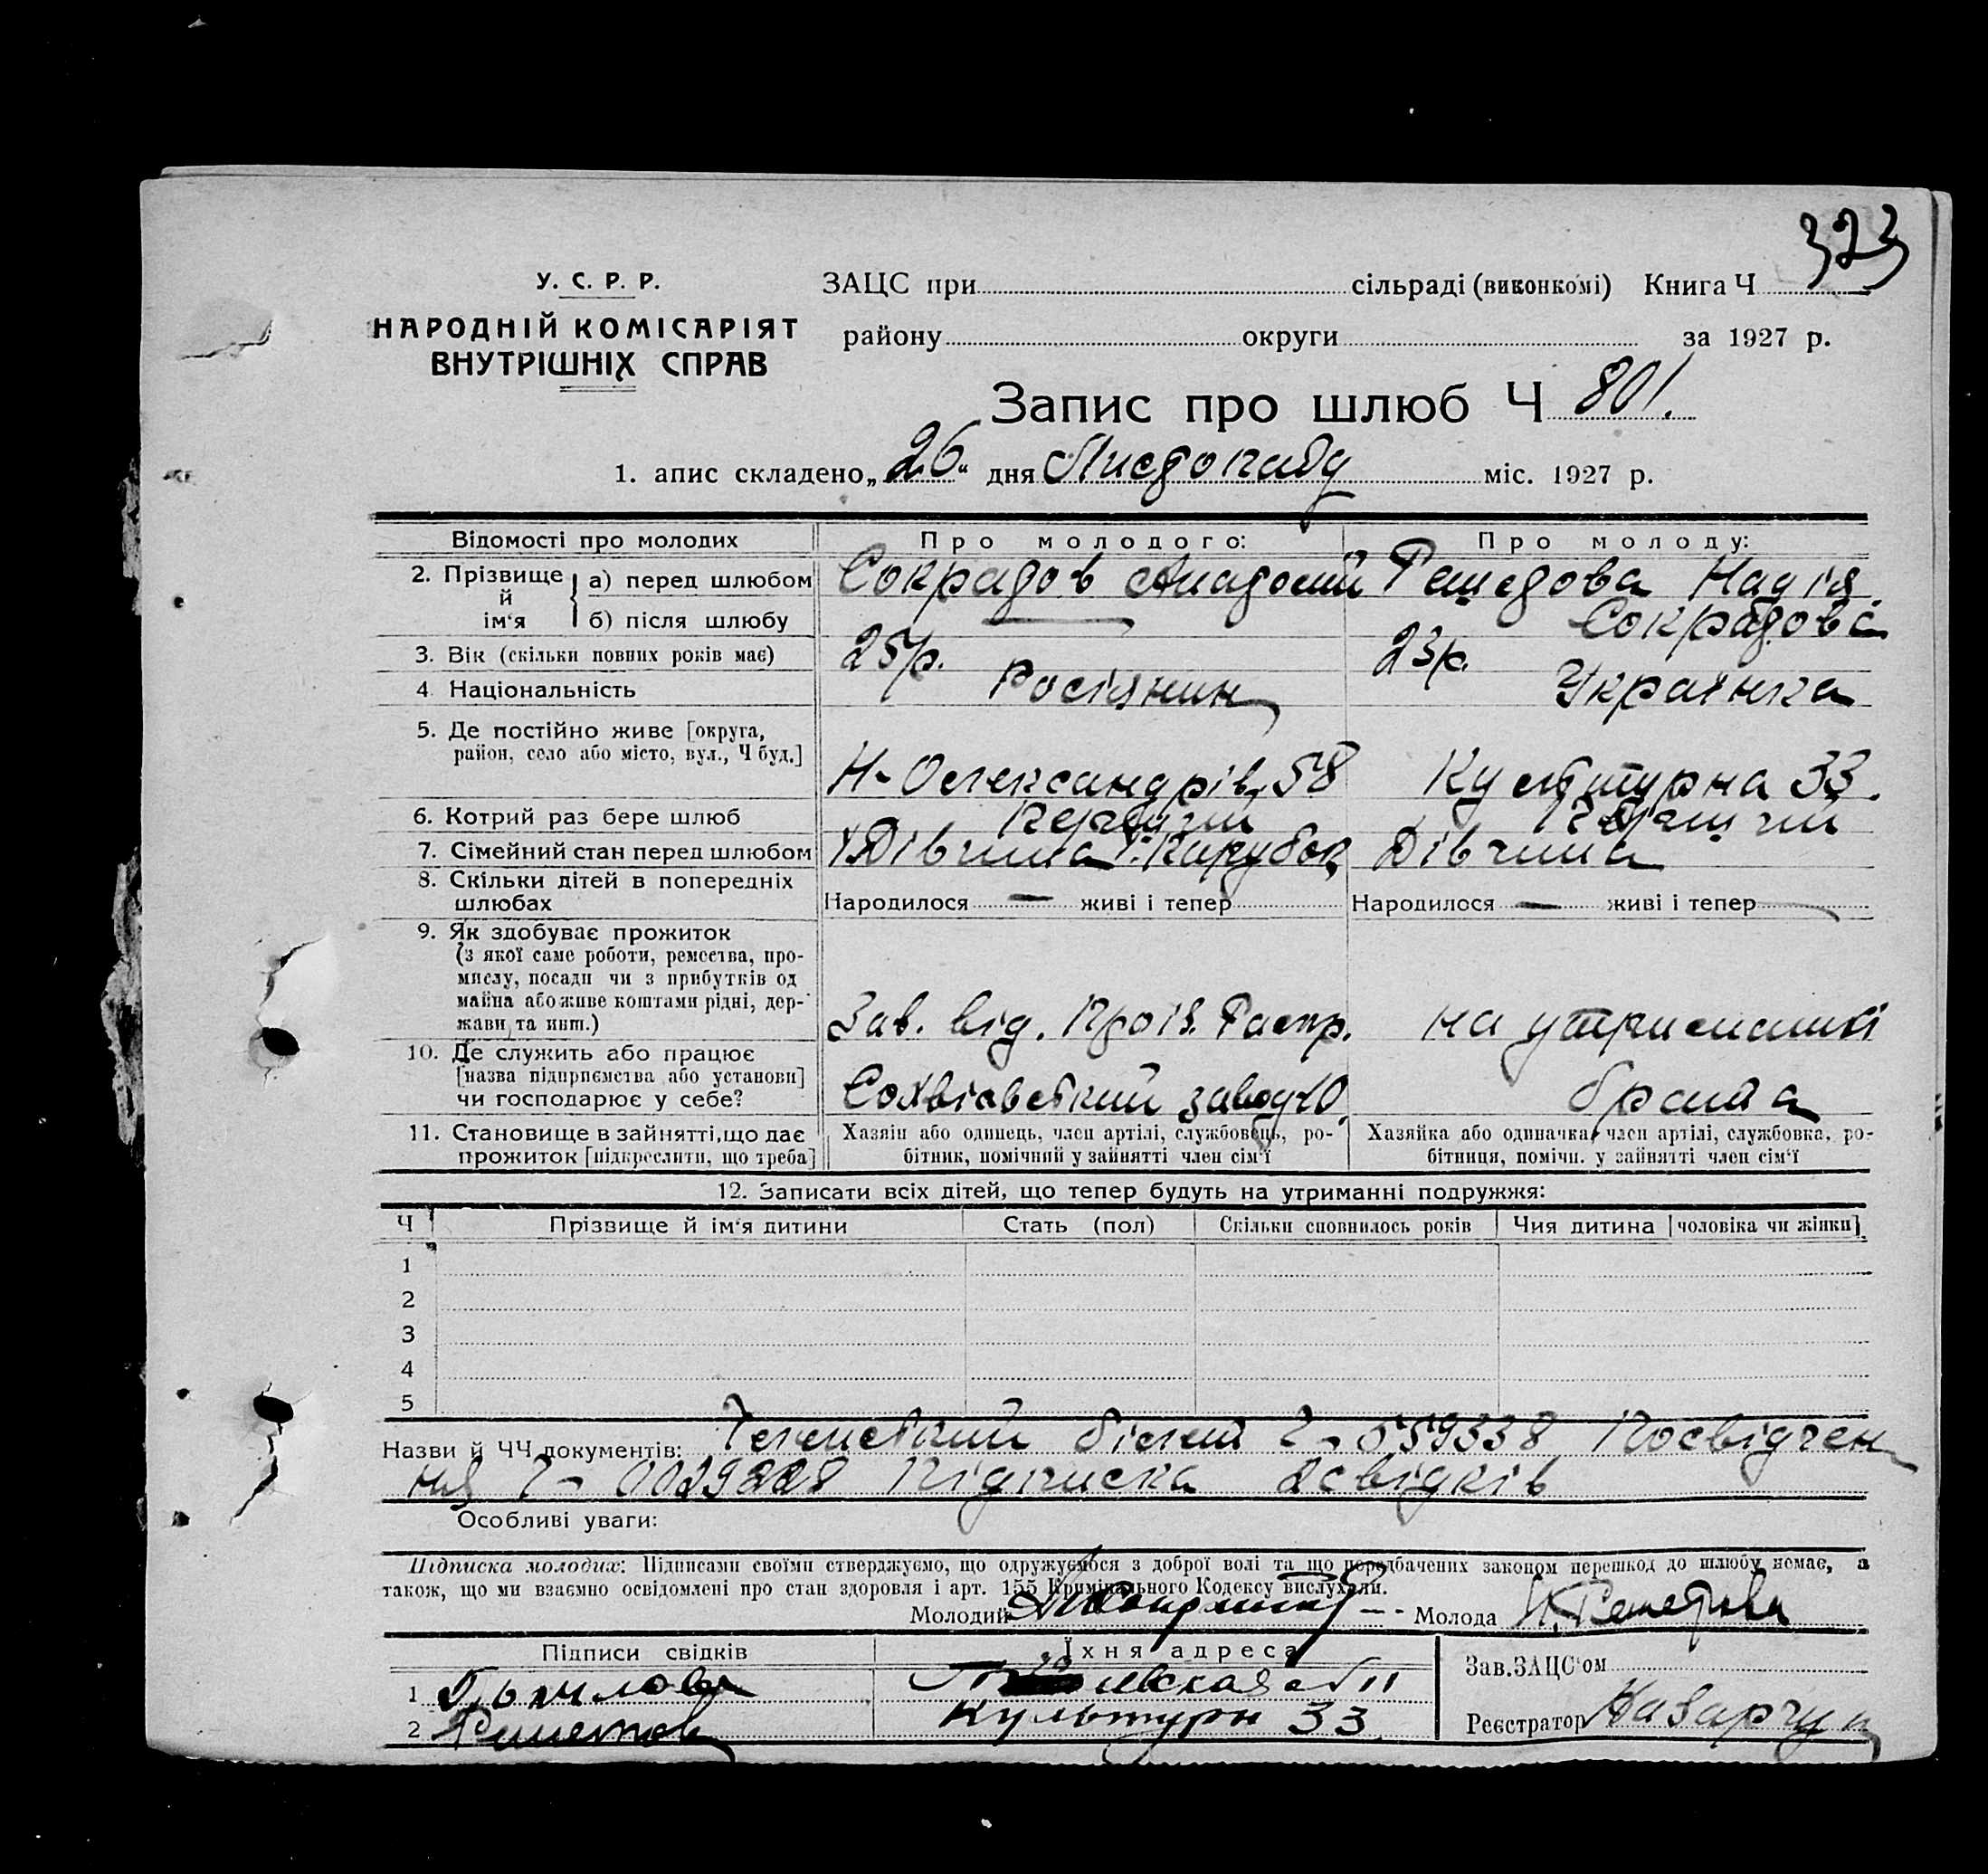 323
У. С. Р. Р.
НАРОДНІЙ КОМІСАРІЯТ
ВНУТРІШНІХ СПРАВ
ЗАЦС при сільраді (виконкомі) Книга Ч
району округи за 1927 р.
Запис про шлюб Ч 801.
1. апис складено „26“ дня Листопаду міс. 1927 р.
Відомості про молодих Про молодого: Про молоду:
2. Прізвище й ім'я
а) перед шлюбом Сократов Анатолій Решетова Надія
б) після шлюбу — Сократова
3. Вік (скільки повних років має) 25 р. 23 р.
4. Національність Росіянин Українка
5. Де постійно живе [округа, район, село або місто, вул., Ч буд.]
Н-Олександрів. 58 Культурна 33.
6. Котрий раз бере шлюб Перший Перший
7. Сімейний стан перед шлюбом Дівчина Парубок Дівчина
8. Скільки дітей в попередніх шлюбах
Народилося — живі і тепер Народилося — живі і тепер
9. Як здобуває прожиток
(з якої саме роботи, ремества, про-
мислу, посади чи з прибутків од
майна або живе коштами рідні, дер-
жави та инш.)
Зав. від. на утриманні
10. Де служить або працює
[назва підприємства або установи]
чи господарює у себе?
завод брата
11. Становище в зайнятті, що дає
прожиток [підкреслити, що треба]
Хазяін або одинець, член артілі, службовець, ро-
бітник, помічний у зайнятті член сім'ї
Хазяйка або одиначка, член артілі, службовка, ро-
бітниця, помічн. у зайнятті член сім'ї
12. Записати всіх дітей, що тепер будуть на утриманні подружжя:
Ч Прізвище й ім'я дитини Стать (пол) Скільки сповнилось років Чия дитина [чоловіка чи жінки]
1
2
3
4
5
Назви й ЧЧ документів: Членский білет Ч- 559338 Посвідчен
ня Ч- 0029228 Підписка 2 свідків
Особливі уваги:
Підписка молодих: Підписами своїми стверджуємо, що одружуємося з доброї волі та що передбачених законом перешкод до шлюбу немає, а
також, що ми взаємно освідомлені про стан здоровля і арт. 155 Кримінального Кодексу вислухали.
Молодий Молода Н. Решетова
Підписи свідків Їхня адреса
1
2 Решетов Культурн 33
Зав. ЗАЦС'ом
Реєстратор Назарчук